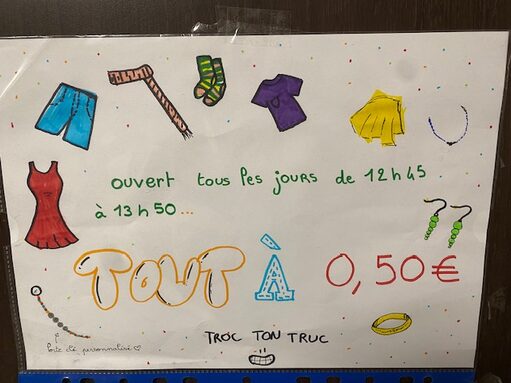 ouvert tous les jours de 12h45
à 13h50...
TOUT À 0,50€
TROC TON TRUC
porte clé personnalisé ♡